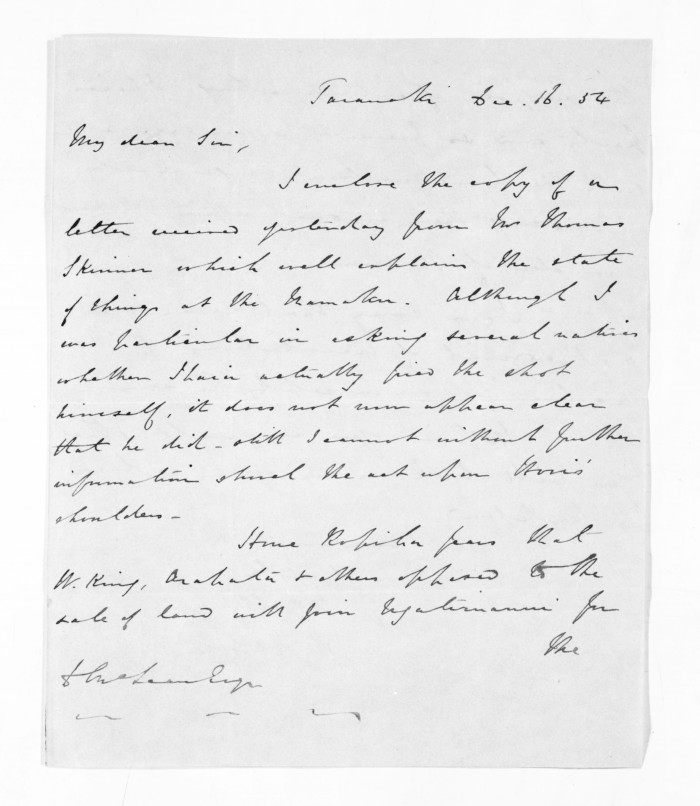 Taranaki Dec. 16. 54
My dear Sir,
I enclose the copy of a
letter received yesterday from Mr Thomas
Skinner which well explains the state
of things at the Mamaku. Although I
was particular in asking several natives
whether Ihaia actually fired the shot
himself, it does not now appear clear
that he did - still I cannot without further
information shovel the act upon Hori's
shoulders -
Hone Ropiha fears that
W. King, & others opposed to the
sale of land will join Ngatiruanui for
the
D McLean Esqr